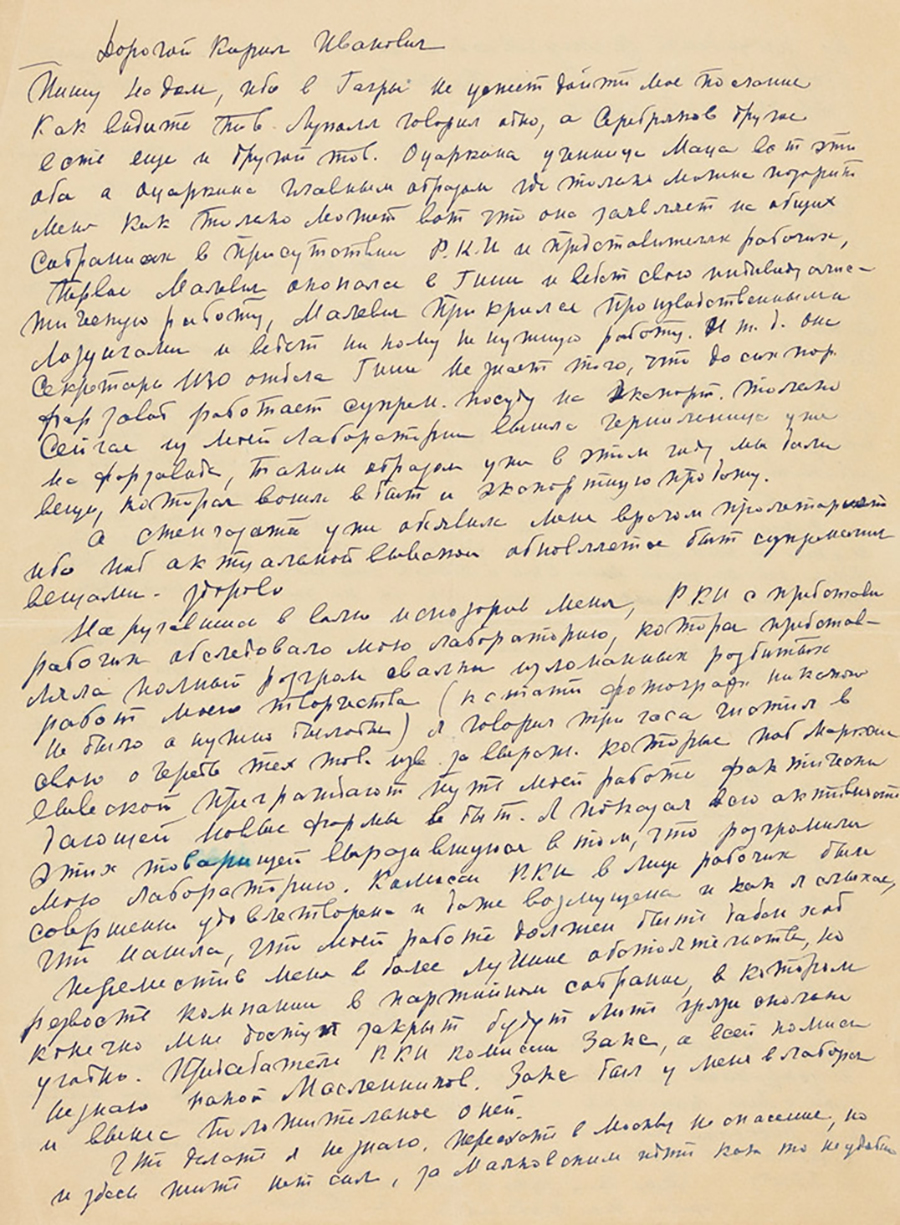 Дорогой Кирил Иванович
Пишу на дом, ибо в Гагры не успеет дойти мое послание
Как видите тов. Луппол говорил одно, а Серебряков другое
есть еще и другой тов. учиница Маца вот эти
оба а главным образом где только можно позорит
меня как только может вот что она заявляет на общих
собраниях в присутствии Р.К.И и представителях рабочих,
Первое Малевич окопался в Гиии и ведет свою индивидуалис-
тическую работу, Малевич прикрылся производственными
лозунгами и ведет ни кому не нужную работу. И т. д. она
Секретарь ИЗО отдела Гиии не знает того, что до сих пор
фарзавод работает супрем. посуду на экспорт. только
Сейчас из моей Лаборатории вышла чернильница уже
на фарзавода, таким образом уже в этом году мы дали
вещь, которая вошла в быт и экспортную продажу.
А стенгазета уже объявила меня врагом пролетариата
ибо под актуальной вывеской обновляется быт супрематич
вещами - здорово
Наругавшись в волю исподорив меня, РКИ с представи
рабочих обследовало мою лабораторию, котора представ-
ляла полный разгром свалки изломанных разбитых
работ моего творчества (кстати фотографа никакого
не было а нужно было бы) я говорил три часа чистил в
свою очередь тех тов. изв. за выраж. которые под марксис
вывеской преграждают путь моей работе фактически
дающей новые формы в быт. Я показал всю активность
этих товарищей выразившуюся в том, что разгромили
мою лабораторию. Комиссия РКИ в лице рабочих были
совершенно удовлетворена и даже возмущена и как я слыхал,
что нашла, что моей работе должен быть дабан ход
переместив меня в более лучшие обстоятельства, но
резвость компании в партийном собрании, в котором
конечно мне доступ закрыт будут лить грязи сколько
угодно. Председателе РКИ комиссии Закс, а всей комиси
незнаю какой Масленников. Закс был у меня в лабора
и вынес положительное о ней.
Что делать я не знаю, переехать в Москву не спасение, но
и здесь жить нет сил, за Маяковским идти как то неудобно